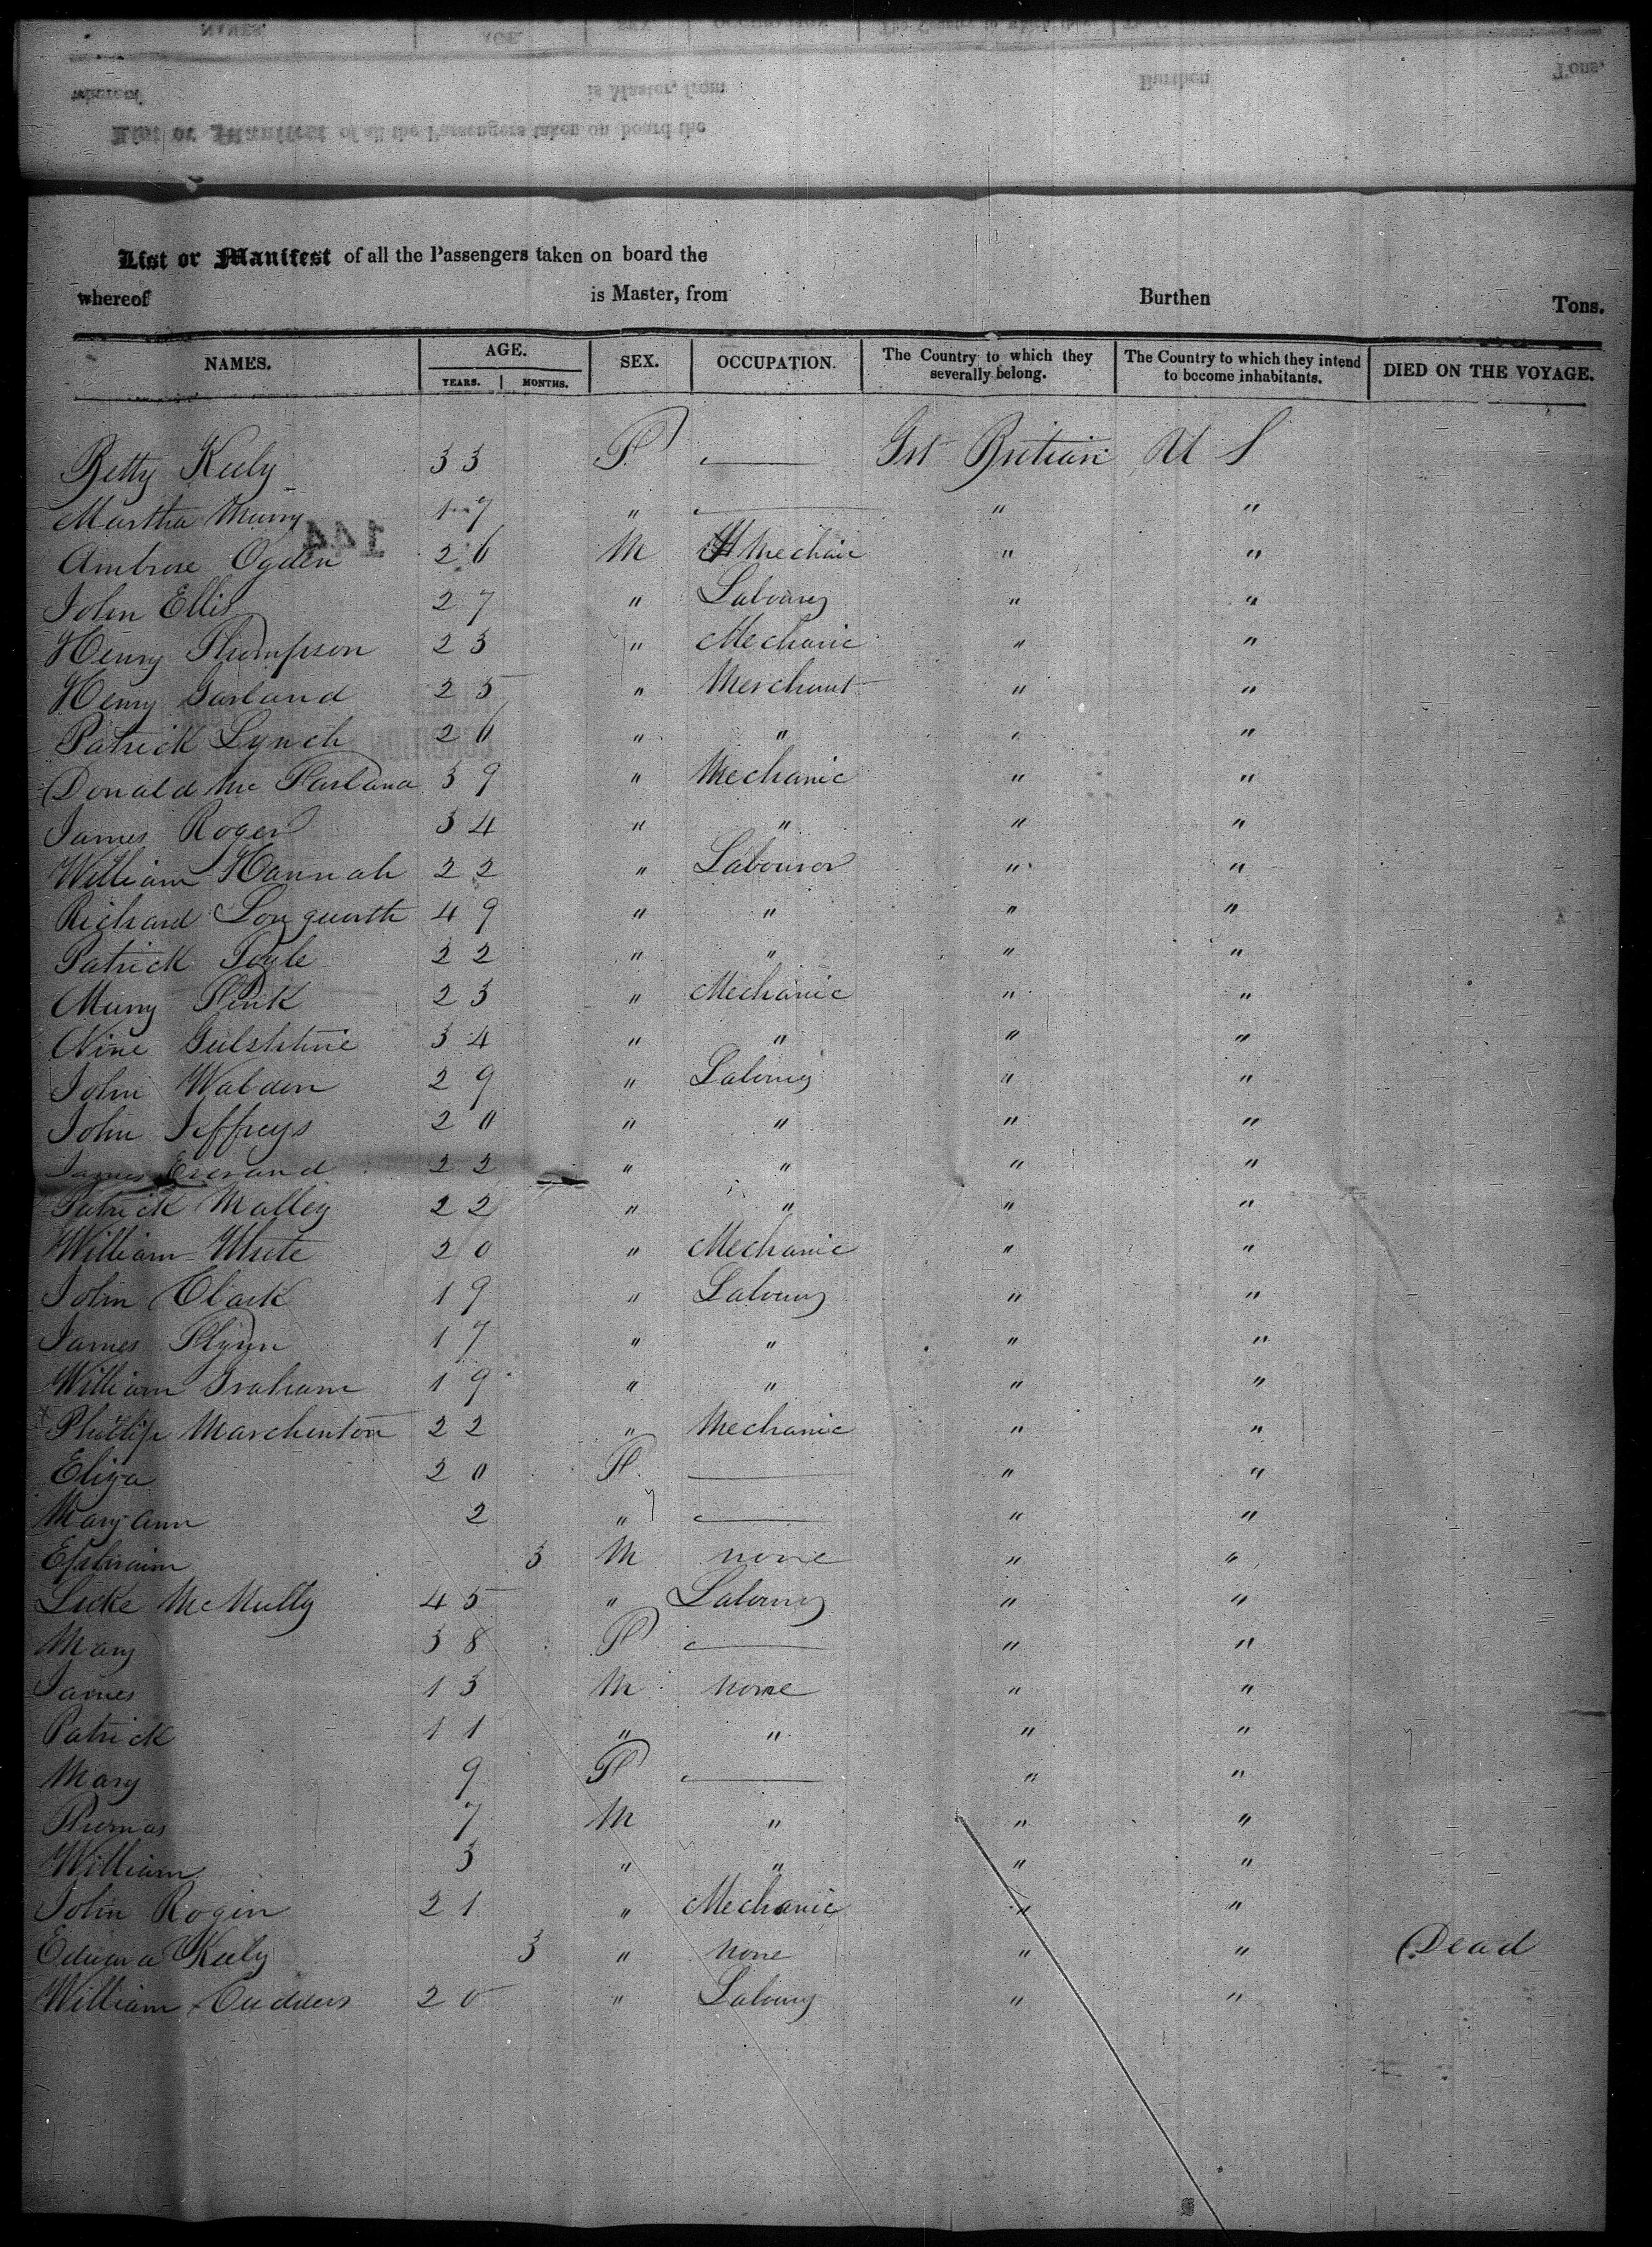 List or Manifest of all the Passengers taken on board the
whereof is Master, from Burthen Tons.
NAMES. AGE. SEX. OCCUPATION. The Country to which they severally belong. The Country to which they intend to become inhabitants. DIED ON THE VOYAGE.
YEARS. MONTHS.
Betty Kuly 33 F — Grt Britian U S
Martha Murry 17 " — " "
144
Ambrose Ogden 26 M Mechanic " "
John Ellis 27 " Labourer " "
Henry Thompson 23 " Mechanic " "
Henry Garland 25 " Merchant " "
Patrick Lynch 26 " " " "
Donald Mc Farland 39 " Mechanic " "
James Roger 34 " " " "
William Hannah 22 " Labourer " "
Richard Longworth 49 " " " "
Patrick 22 " " " "
Murry Fink 23 " Mechanic " "
34 " " " "
John Walden 29 " Labourer " "
John Jeffreys 20 " " " "
James 22 " " " "
Patrick Malley 22 " " " "
William White 20 " Mechanic " "
John Clark 19 " Labourer " "
James Flynn 17 " " " "
William Graham 19 " " " "
x Phillip Marchenton 22 " Mechanic " "
Eliza 20 F — " "
Mary ann 2 " — " "
Ephraim 3 M none " "
Luke McNully 45 " Labourer " "
Mary 38 F — " "
James 13 M none " "
Patrick 11 " " " "
Mary 9 F — " "
Thomas 7 M " " "
William 3 " " " "
John Rogin 21 " Mechanic " "
Edward Kuly 3 " none " " Dead
William 20 " Labourer " "